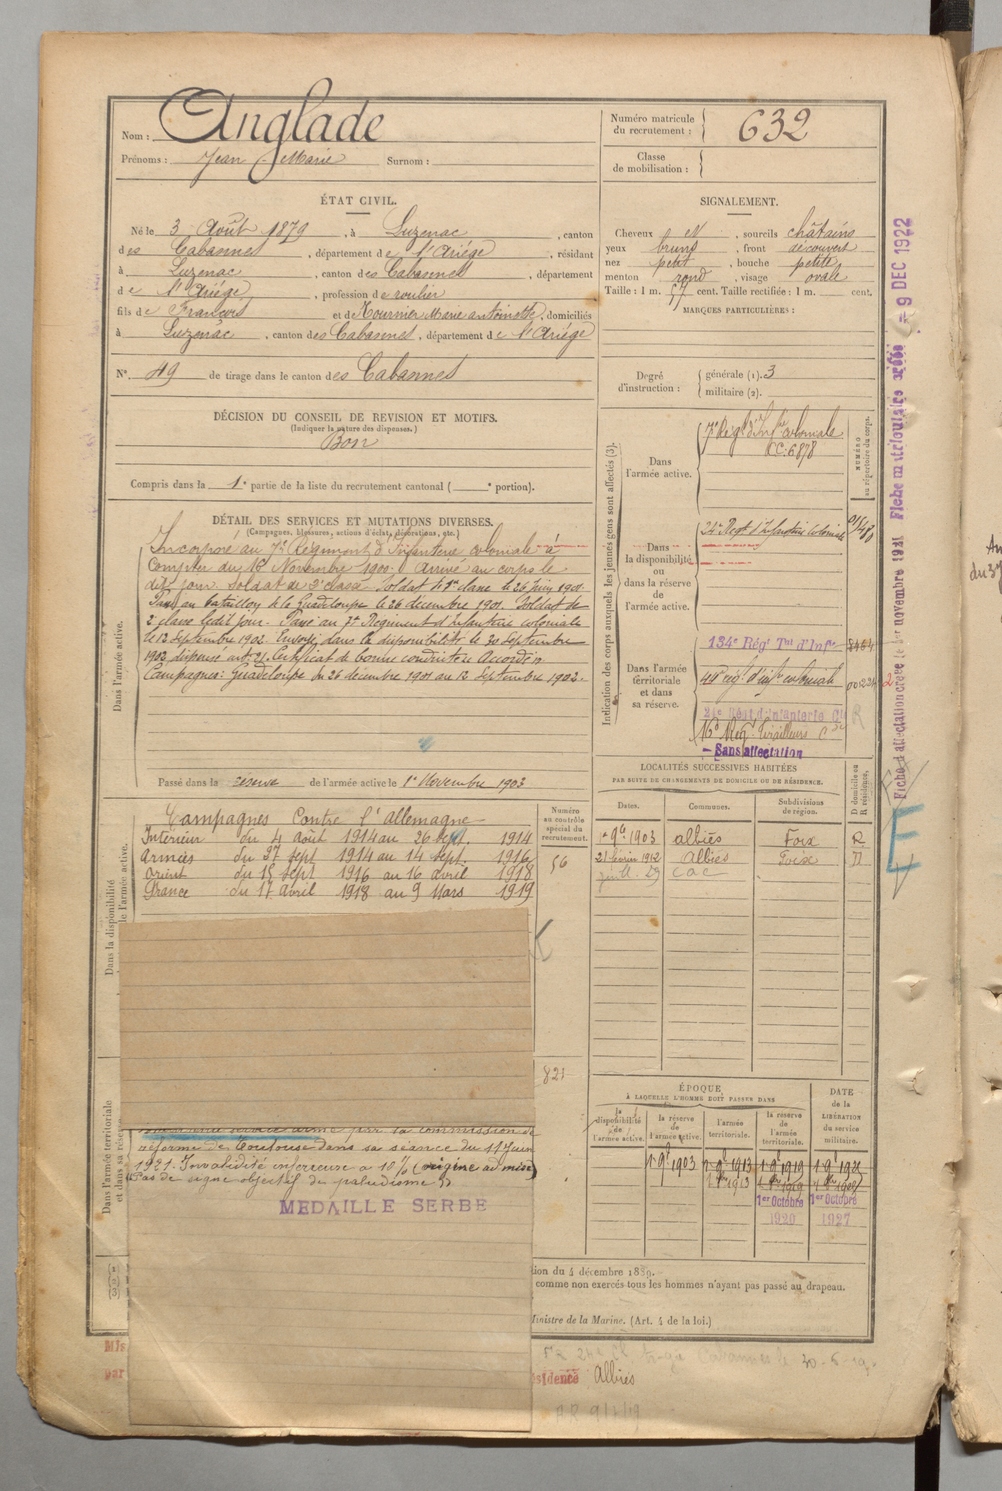 Nom : Anglade
Prénoms : Jean Marie Surnom :
Numéro matricule du recrutement : 632
Classe de mobilisation :
ÉTAT CIVIL.
Né le 3 Août 1879, à Luzenac, canton
des Cabannes, département de l'Ariège, résidant
à Luzenac, canton des Cabannes, département
de l'Ariège, profession de roulier
fils de François et de Fournier Marie antoinette, domiciliés
à Luzenac, canton des Cabannes, département de l'Ariège
N° 49 de tirage dans le canton des Cabannes
SIGNALEMENT.
Cheveux et, sourcils châtains
yeux bruns, front découvert
nez petit, bouche petite
menton rond, visage ovale
Taille : 1 m. 57 cent. Taille rectifiée : 1 m. cent.
MARQUES PARTICULIÈRES :
Degré d'instruction : générale (1). 3
militaire (2).
DÉCISION DU CONSEIL DE REVISION ET MOTIFS.
(Indiquer la nature des dispenses.)
Bon
Compris dans la 1e partie de la liste du recrutement cantonal ( e portion).
DÉTAIL DES SERVICES ET MUTATIONS DIVERSES.
(Campagnes, blessures, actions d'éclat, décorations, etc.)
Dans l'armée active.
Incorporé au 7e Régiment d'Infanterie coloniale à
compter du 16 Novembre 1900. Arrivé au corps le
dit jour. Soldat de 2e classe. Soldat de 1re classe le 26 juin 1901.
Passé au bataillon de la Guadeloupe le 26 décembre 1901. Soldat de
2e classe le dit jour. Passé au 7e Régiment d'infanterie coloniale
le 12 Septembre 1903. Envoyé dans la disponibilité le 30 Septembre
1903 dispensé art. 21. Certificat de bonne conduite Accordé
Campagnes : Guadeloupe du 26 décembre 1901 au 12 Septembre 1903.
Passé dans la réserve de l'armée active le 1er Novembre 1903
Indication des corps auxquels les jeunes gens sont affectés (3).
NUMÉRO au répertoire du corps.
Dans l'armée active.
7e Régt d'Infrie coloniale
CC: 6878
Dans la disponibilité ou dans la réserve de l'armée active.
24e Regt d'Infanterie Coloniale 01480
Dans l'armée territoriale et dans sa réserve.
134e Régt Tal d'Infie
4e régt d'infie coloniale
24e Régt d'Infanterie Cle
16e Rég. Tirailleurs
Sans affectation
LOCALITÉS SUCCESSIVES HABITÉES
PAR SUITE DE CHANGEMENTS DE DOMICILE OU DE RÉSIDENCE.
D domicile ou R résidence.
Dates. Communes. Subdivisions de région.
1903 albiès Foix R.
21 février 1912 Albiès Foix D
29
Dans la disponibilité
de l'armée active.
Numéro au contrôle spécial du recrutement.
56
Campagnes Contre l'Allemagne
Intérieur du 4 août 1914 au 26 sept. 1914
Armées du 27 sept 1914 au 14 sept. 1916
Orient du 15 sept 1916 au 16 avril 1918
France du 17 avril 1918 au 9 Mars 1919
821
Dans l'armée territoriale et dans sa réserve
par la commission de
réforme de Toulouse dans sa séance du 11 Juin
1921. Invalidité inférieure à 10% (origine admise)
Pas de signe objectif de paludisme
MEDAILLE SERBE
ÉPOQUE
À LAQUELLE L'HOMME DOIT PASSER DANS
DATE de la LIBÉRATION du service militaire.
la disponibilité de l'armée active. la réserve de l'armée active. l'armée territoriale. la réserve de l'armée territoriale.
1903 1913 1919
1er Octobre 1920 1er Octobre 1927
ion du 4 décembre 1889.
comme non exercés tous les hommes n'ayant pas passé au drapeau.
Ministre de la Marine. (Art. 4 de la loi.)
Albiès
Fiche d'affectation créée le 1er novembre 1921 Fiche matriculaire créée - 9 DEC 1922
E